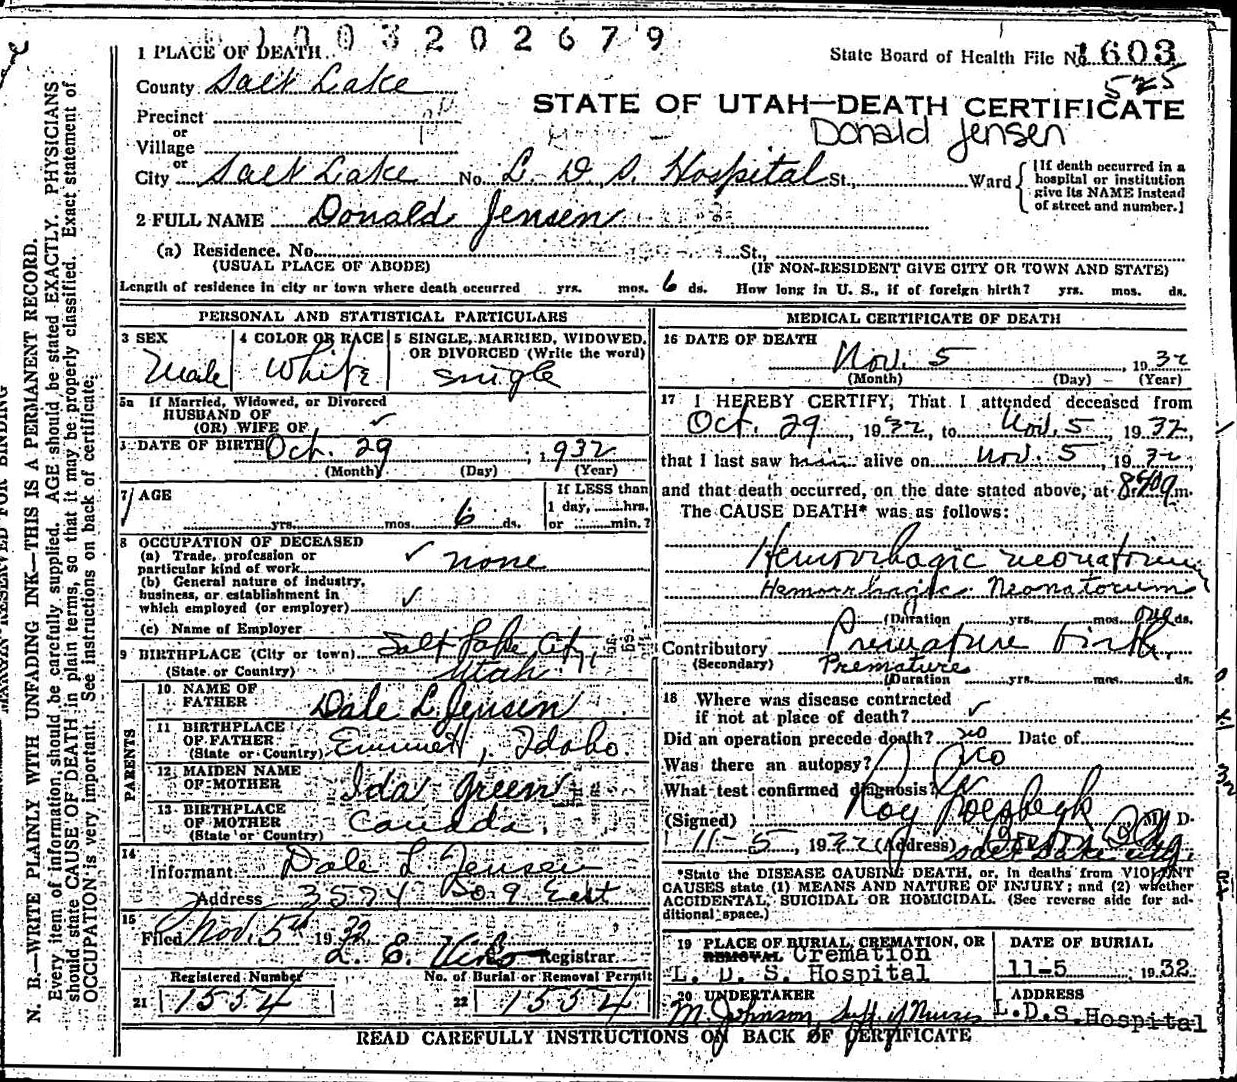 1003202679
1 PLACE OF DEATH
State Board of Health File No. 1603
525
County Salt Lake
STATE OF UTAH—DEATH CERTIFICATE
Precinct
or
Donald Jensen
Village
or
City Salt Lake No. L. D. S. Hospital St., Ward
[If death occurred in a hospital or institution give its NAME instead of street and number.]
2 FULL NAME Donald Jensen
(a) Residence. No. St.,
(USUAL PLACE OF ABODE) (IF NON-RESIDENT GIVE CITY OR TOWN AND STATE)
Length of residence in city or town where death occurred yrs. mos. 6 ds. How long in U. S., if of foreign birth? yrs. mos. ds.
PERSONAL AND STATISTICAL PARTICULARS
3 SEX 4 COLOR OR RACE 5 SINGLE, MARRIED, WIDOWED, OR DIVORCED (Write the word)
Male White Single
5a If Married, Widowed, or Divorced
HUSBAND OF
(OR) WIFE OF ✓
DATE OF BIRTH Oct. 29 1932
(Month) (Day) (Year)
7 AGE
If LESS than
1 day, hrs.
yrs. mos. 6 ds. or min.?
8 OCCUPATION OF DECEASED
(a) Trade, profession or
particular kind of work ✓ none
(b) General nature of industry,
business, or establishment in
which employed (or employer) ✓
(c) Name of Employer
9 BIRTHPLACE (City or town) Salt Lake City
(State or Country) Utah
PARENTS
10 NAME OF
FATHER Dale L. Jensen
11 BIRTHPLACE
OF FATHER
(State or Country) Emmett, Idaho.
12 MAIDEN NAME
OF MOTHER Ida Green
13 BIRTHPLACE
OF MOTHER
(State or Country) Canada.
14
Informant Dale L Jensen
Address 3574 So. 9 East
15
Filed Nov. 5th 1932
L. E. Registrar
Registered Number No. of Burial or Removal Permit
21 1554 22 1554
MEDICAL CERTIFICATE OF DEATH
16 DATE OF DEATH
Nov. 5, 1932
(Month) (Day) (Year)
17 I HEREBY CERTIFY, That I attended deceased from
Oct. 29, 1932, to Nov. 5 1932,
that I last saw him alive on Nov. 5, 1932
and that death occurred, on the date stated above, at m.
The CAUSE DEATH* was as follows:
Hemorrhagic neonatorum
Hemorrhagic Neonatorum
(Duration yrs. mos. one ds.
Contributory Premature birth.
(Secondary) Premature
(Duration yrs. mos. ds.
18 Where was disease contracted
if not at place of death? ✓
Did an operation precede death? no Date of
Was there an autopsy? No
What test confirmed diagnosis?
(Signed) Roy M. D.
11-5, 1932 (Address)
Salt Lake City.
*State the DISEASE CAUSING DEATH, or, in deaths from VIOLENT
CAUSES state (1) MEANS AND NATURE OF INJURY; and (2) whether
ACCIDENTAL, SUICIDAL OR HOMICIDAL. (See reverse side for ad-
ditional space.)
19 PLACE OF BURIAL, CREMATION, OR REMOVAL DATE OF BURIAL
Cremation
L. D. S. Hospital 11-5, 1932
20 UNDERTAKER ADDRESS
M. Johnson Supt. of Nurses L.D.S. Hospital
READ CAREFULLY INSTRUCTIONS ON BACK OF CERTIFICATE
MARGIN RESERVED FOR BINDING
N. B.—WRITE PLAINLY WITH UNFADING INK—THIS IS A PERMANENT RECORD.
Every item of information should be carefully supplied. AGE should be stated EXACTLY. PHYSICIANS
should state CAUSE OF DEATH in plain terms, so that it may be properly classified. Exact statement of
OCCUPATION is very important. See instructions on back of certificate.